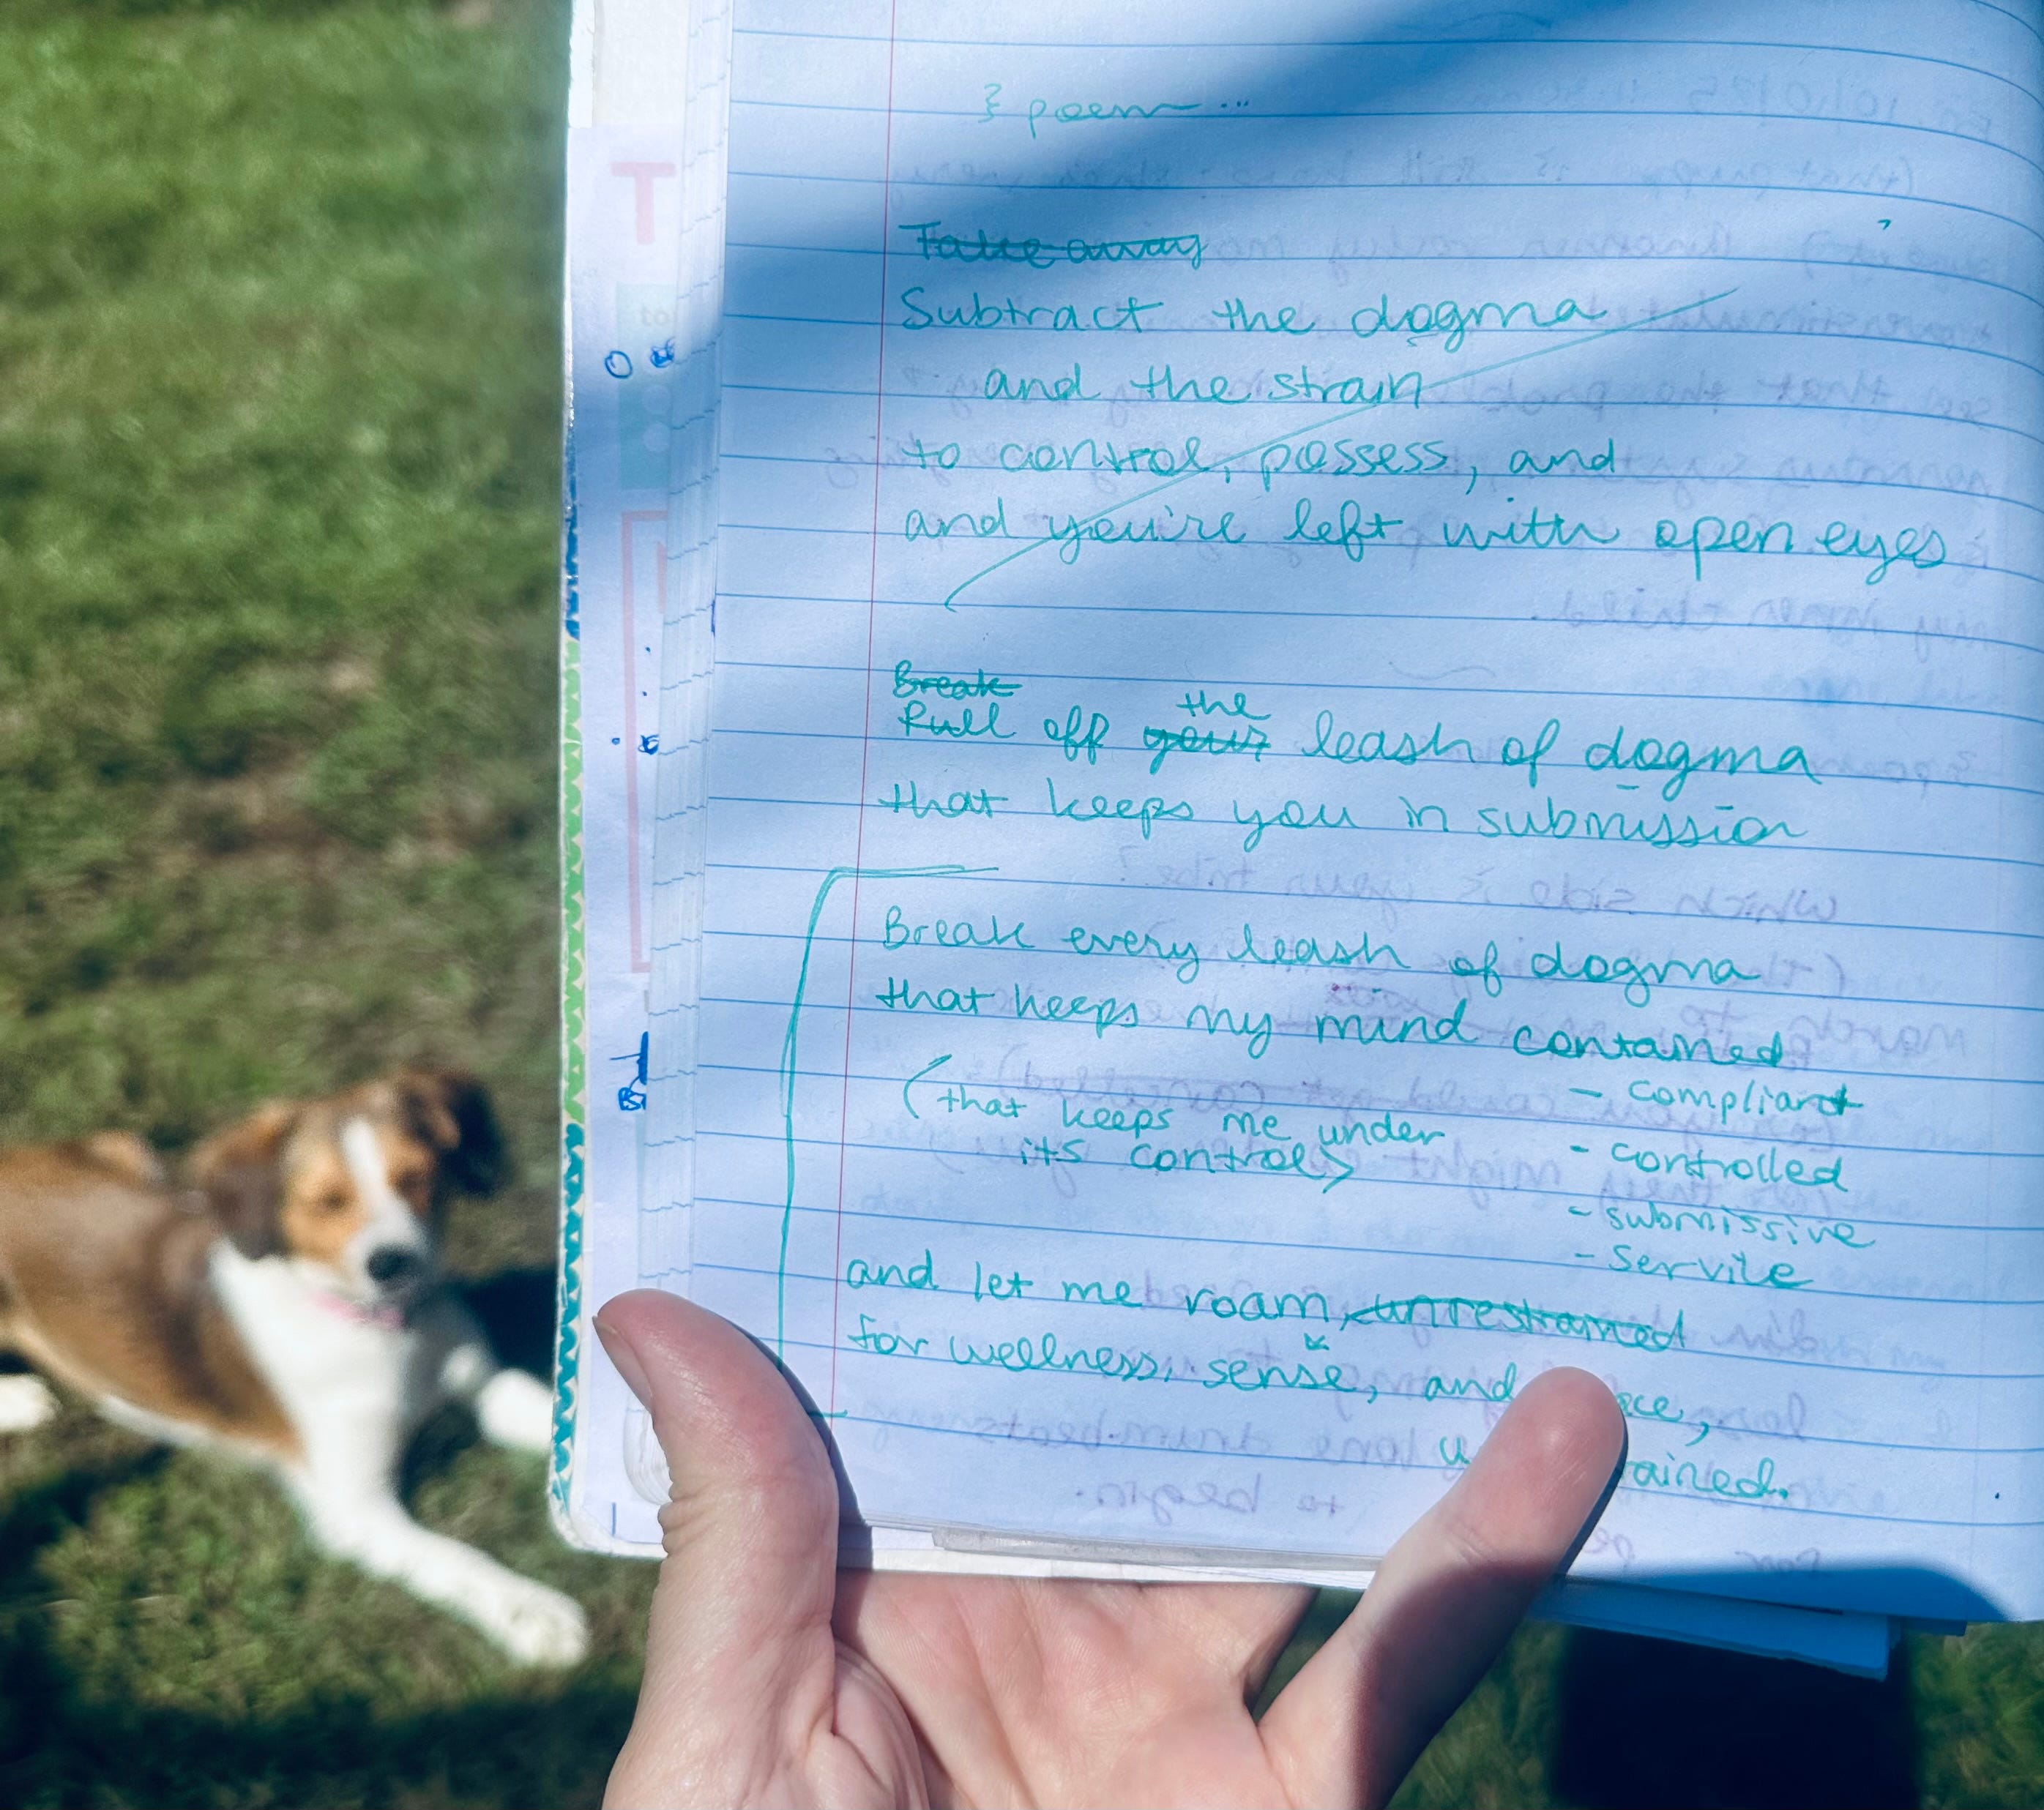 } poem ...
Take away
Subtract the dogma
and the strain
to control, possess, and
and you're left with open eyes
Break
the
Pull off your leash of dogma
that keeps you in submission
Break every leash of dogma
that keeps my mind contained
- compliant
(that keeps me under
its control)
- controlled
- submissive
- servile
and let me roam, unrestrained
for wellness, sense, and
unrestrained.
T
to